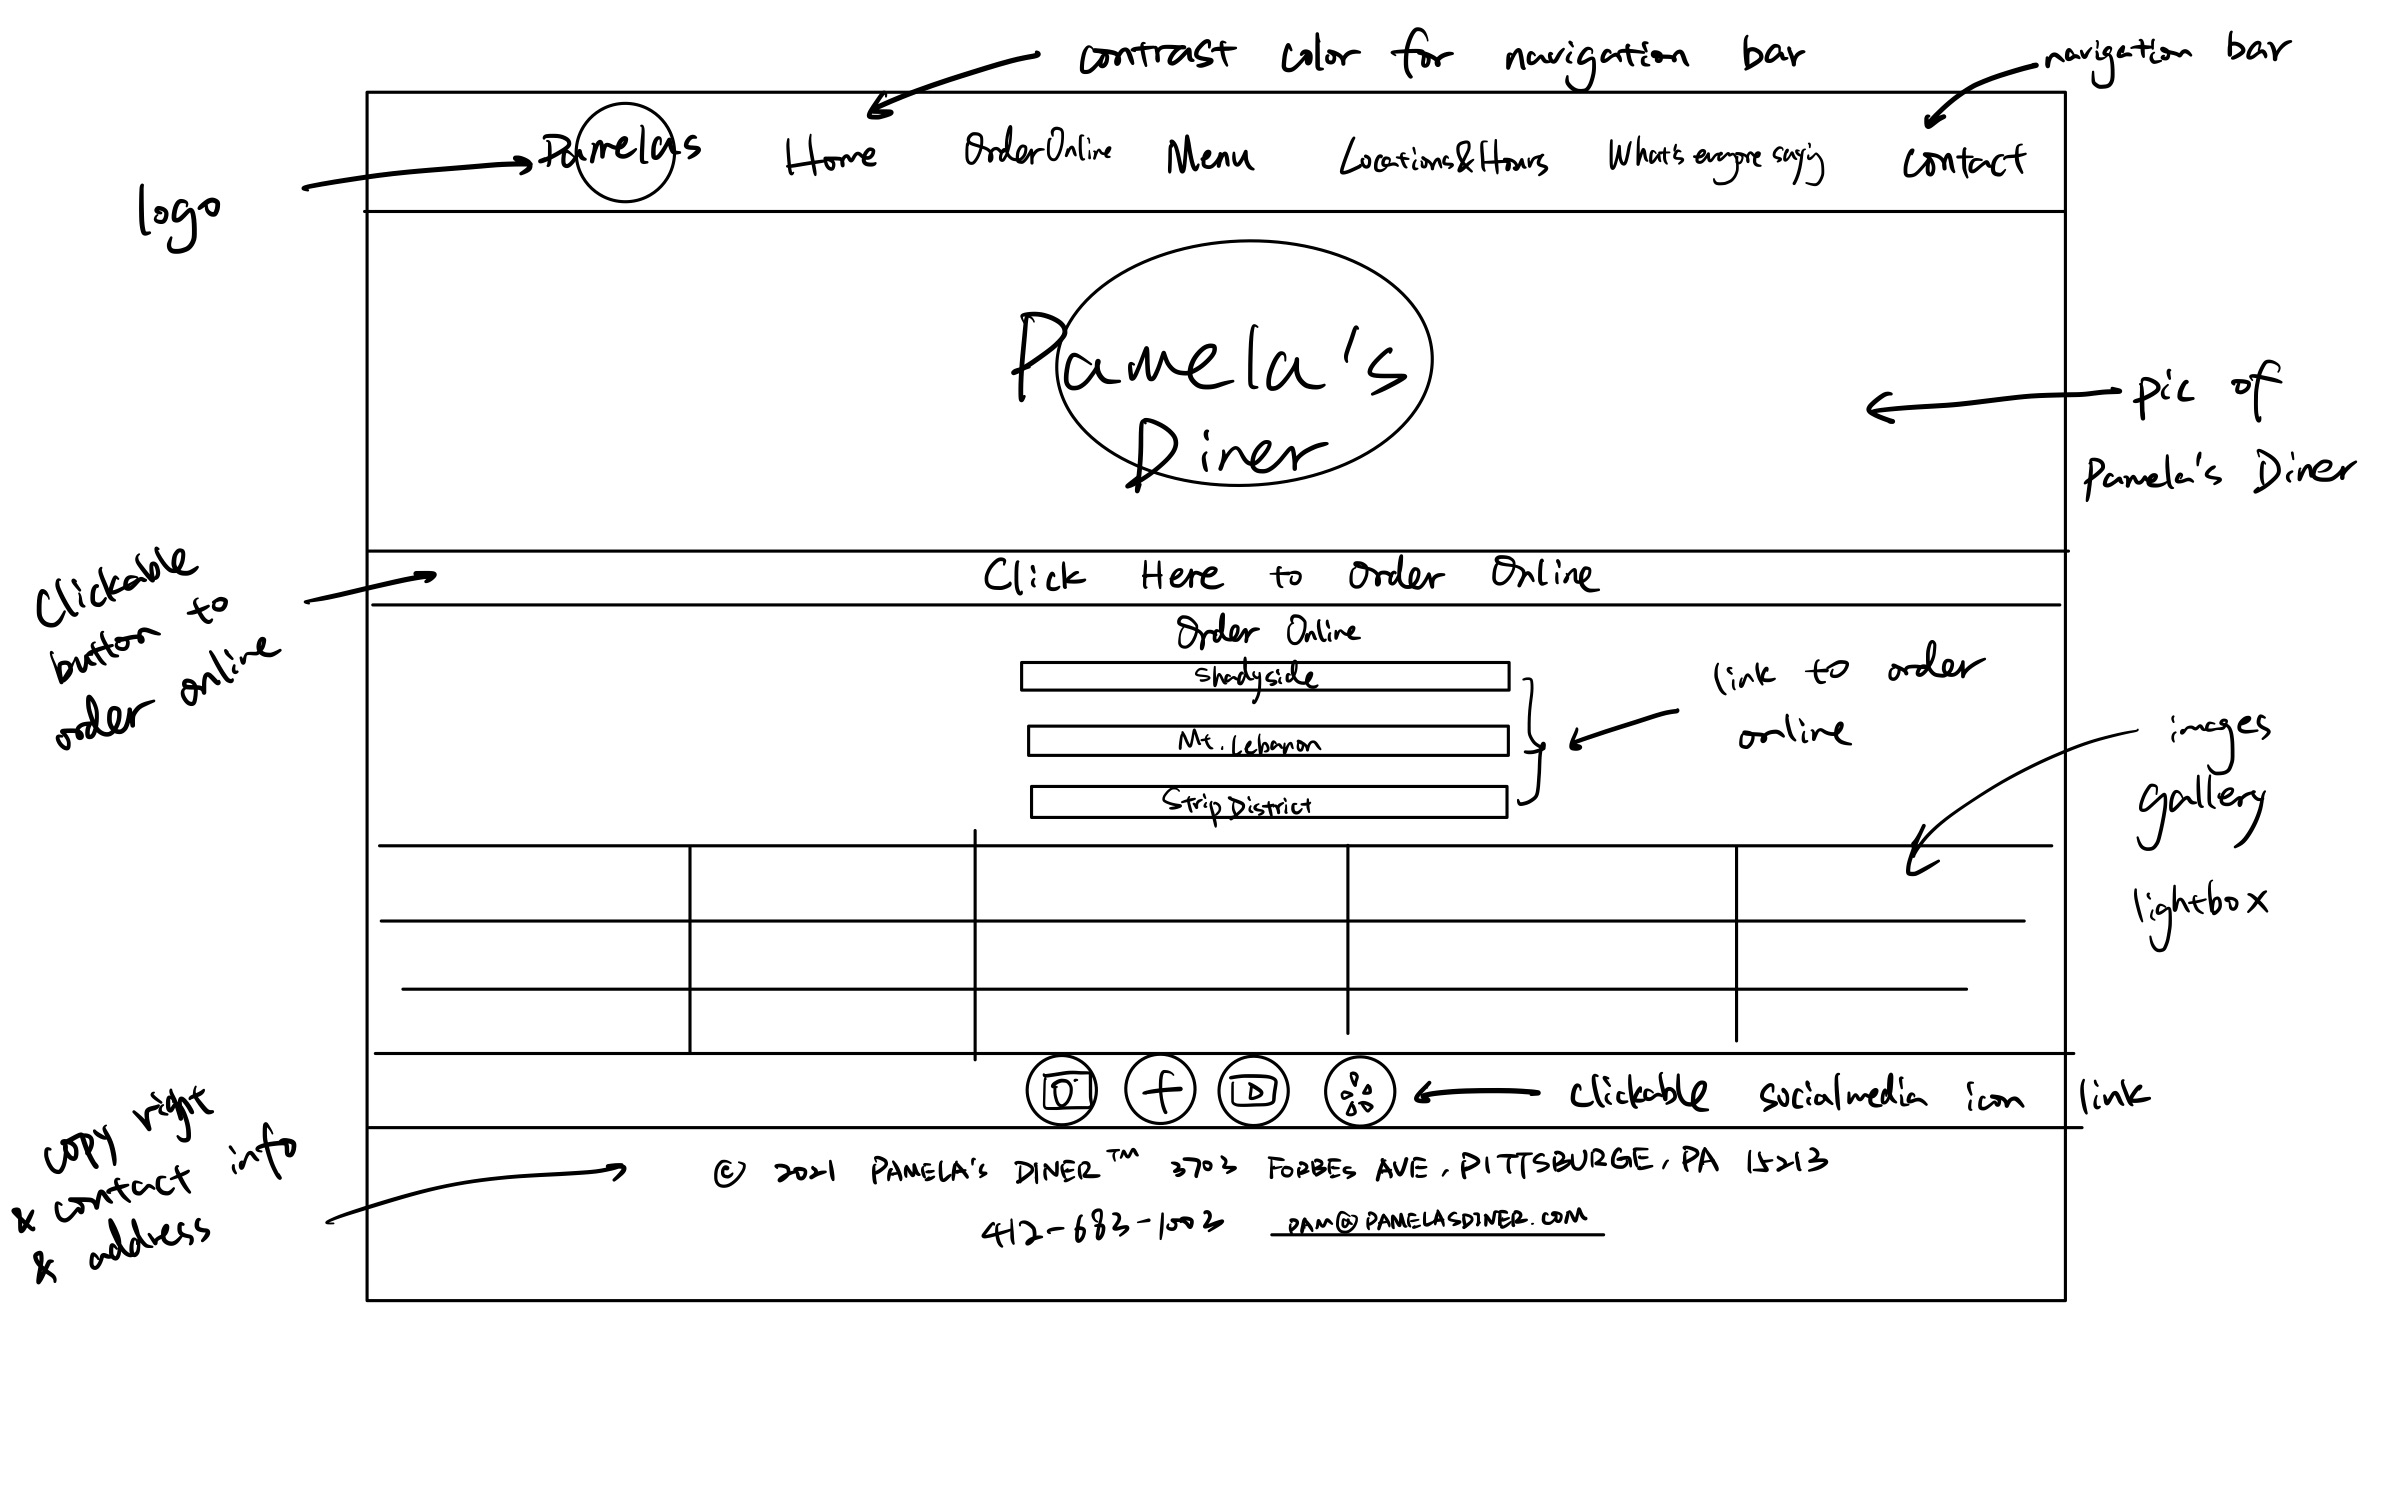 contrast color for navigation bar
navigation bar
logo
Pamelas Home Order Online Menu Locations & Hours What's everyone saying contact
Pamela's
Diner
pic of
Pamela's Diner
Clickable
button to
order online
Click Here to Order Online
Order Online
Shadyside
Mt. Lebanon
Strip District
link to order
online
images
gallery
lightbox
clickable socialmedia icon link
copy right
& contact info
& address
© 2021 PAMELA'S DINER™ 3703 FORBES AVE, PITTSBURGE, PA 15213
412-683-1003 PAM@PAMELASDINER.COM